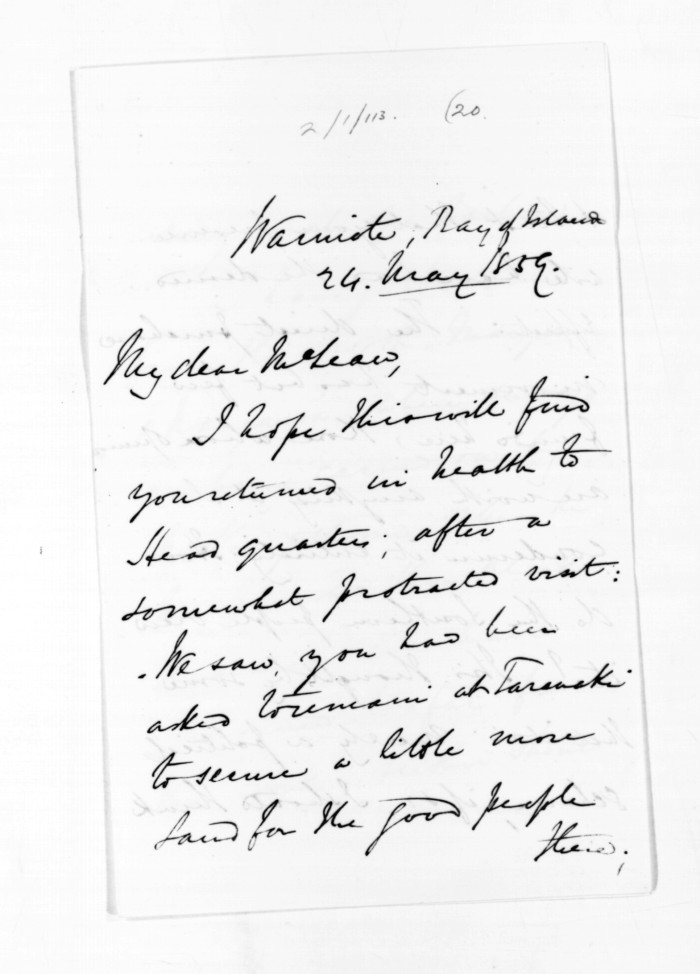 2/1/113. (20.
Waimate, Bay of Islands
24. May 1859.
My dear McLean,
I hope this will find
you returned in health to
Head quarters; after a
somewhat protracted visit:
- We saw, you had been
asked to remain at Taranaki
to secure a little more
land for the good people
there;